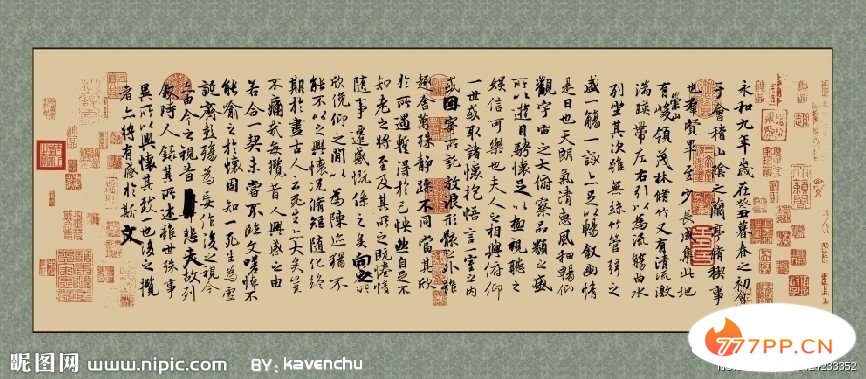 永和九年歲在癸丑暮春之初會
于會稽山陰之蘭亭脩禊事
也羣賢畢至少長咸集此地
有崇山峻領茂林脩竹又有清流激
湍暎帶左右引以為流觴曲水
列坐其次雖無絲竹管弦之
盛一觴一詠亦足以暢敘幽情
是日也天朗氣清惠風和暢仰
觀宇宙之大俯察品類之盛
所以遊目騁懷足以極視聽之
娛信可樂也夫人之相與俯仰
一世或取諸懷抱悟言一室之內
或因寄所託放浪形骸之外雖
趣舍萬殊靜躁不同當其欣
於所遇蹔得於己怏然自足不
知老之將至及其所之既惓情
隨事遷感慨係之矣向之所
欣俛仰之閒以為陳迹猶不
能不以之興懷況脩短隨化終
期於盡古人云死生亦大矣豈
不痛哉每攬昔人興感之由
若合一契未嘗不臨文嗟悼不
能喻之於懷固知一死生為虛
誕齊彭殤為妄作後之視今
亦由今之視昔悲夫故列
敘時人錄其所述雖世殊事
異所以興懷其致一也後之攬
者亦將有感於斯文
昵图网 www.nipic.com BY: kavenchu
777PP.CN